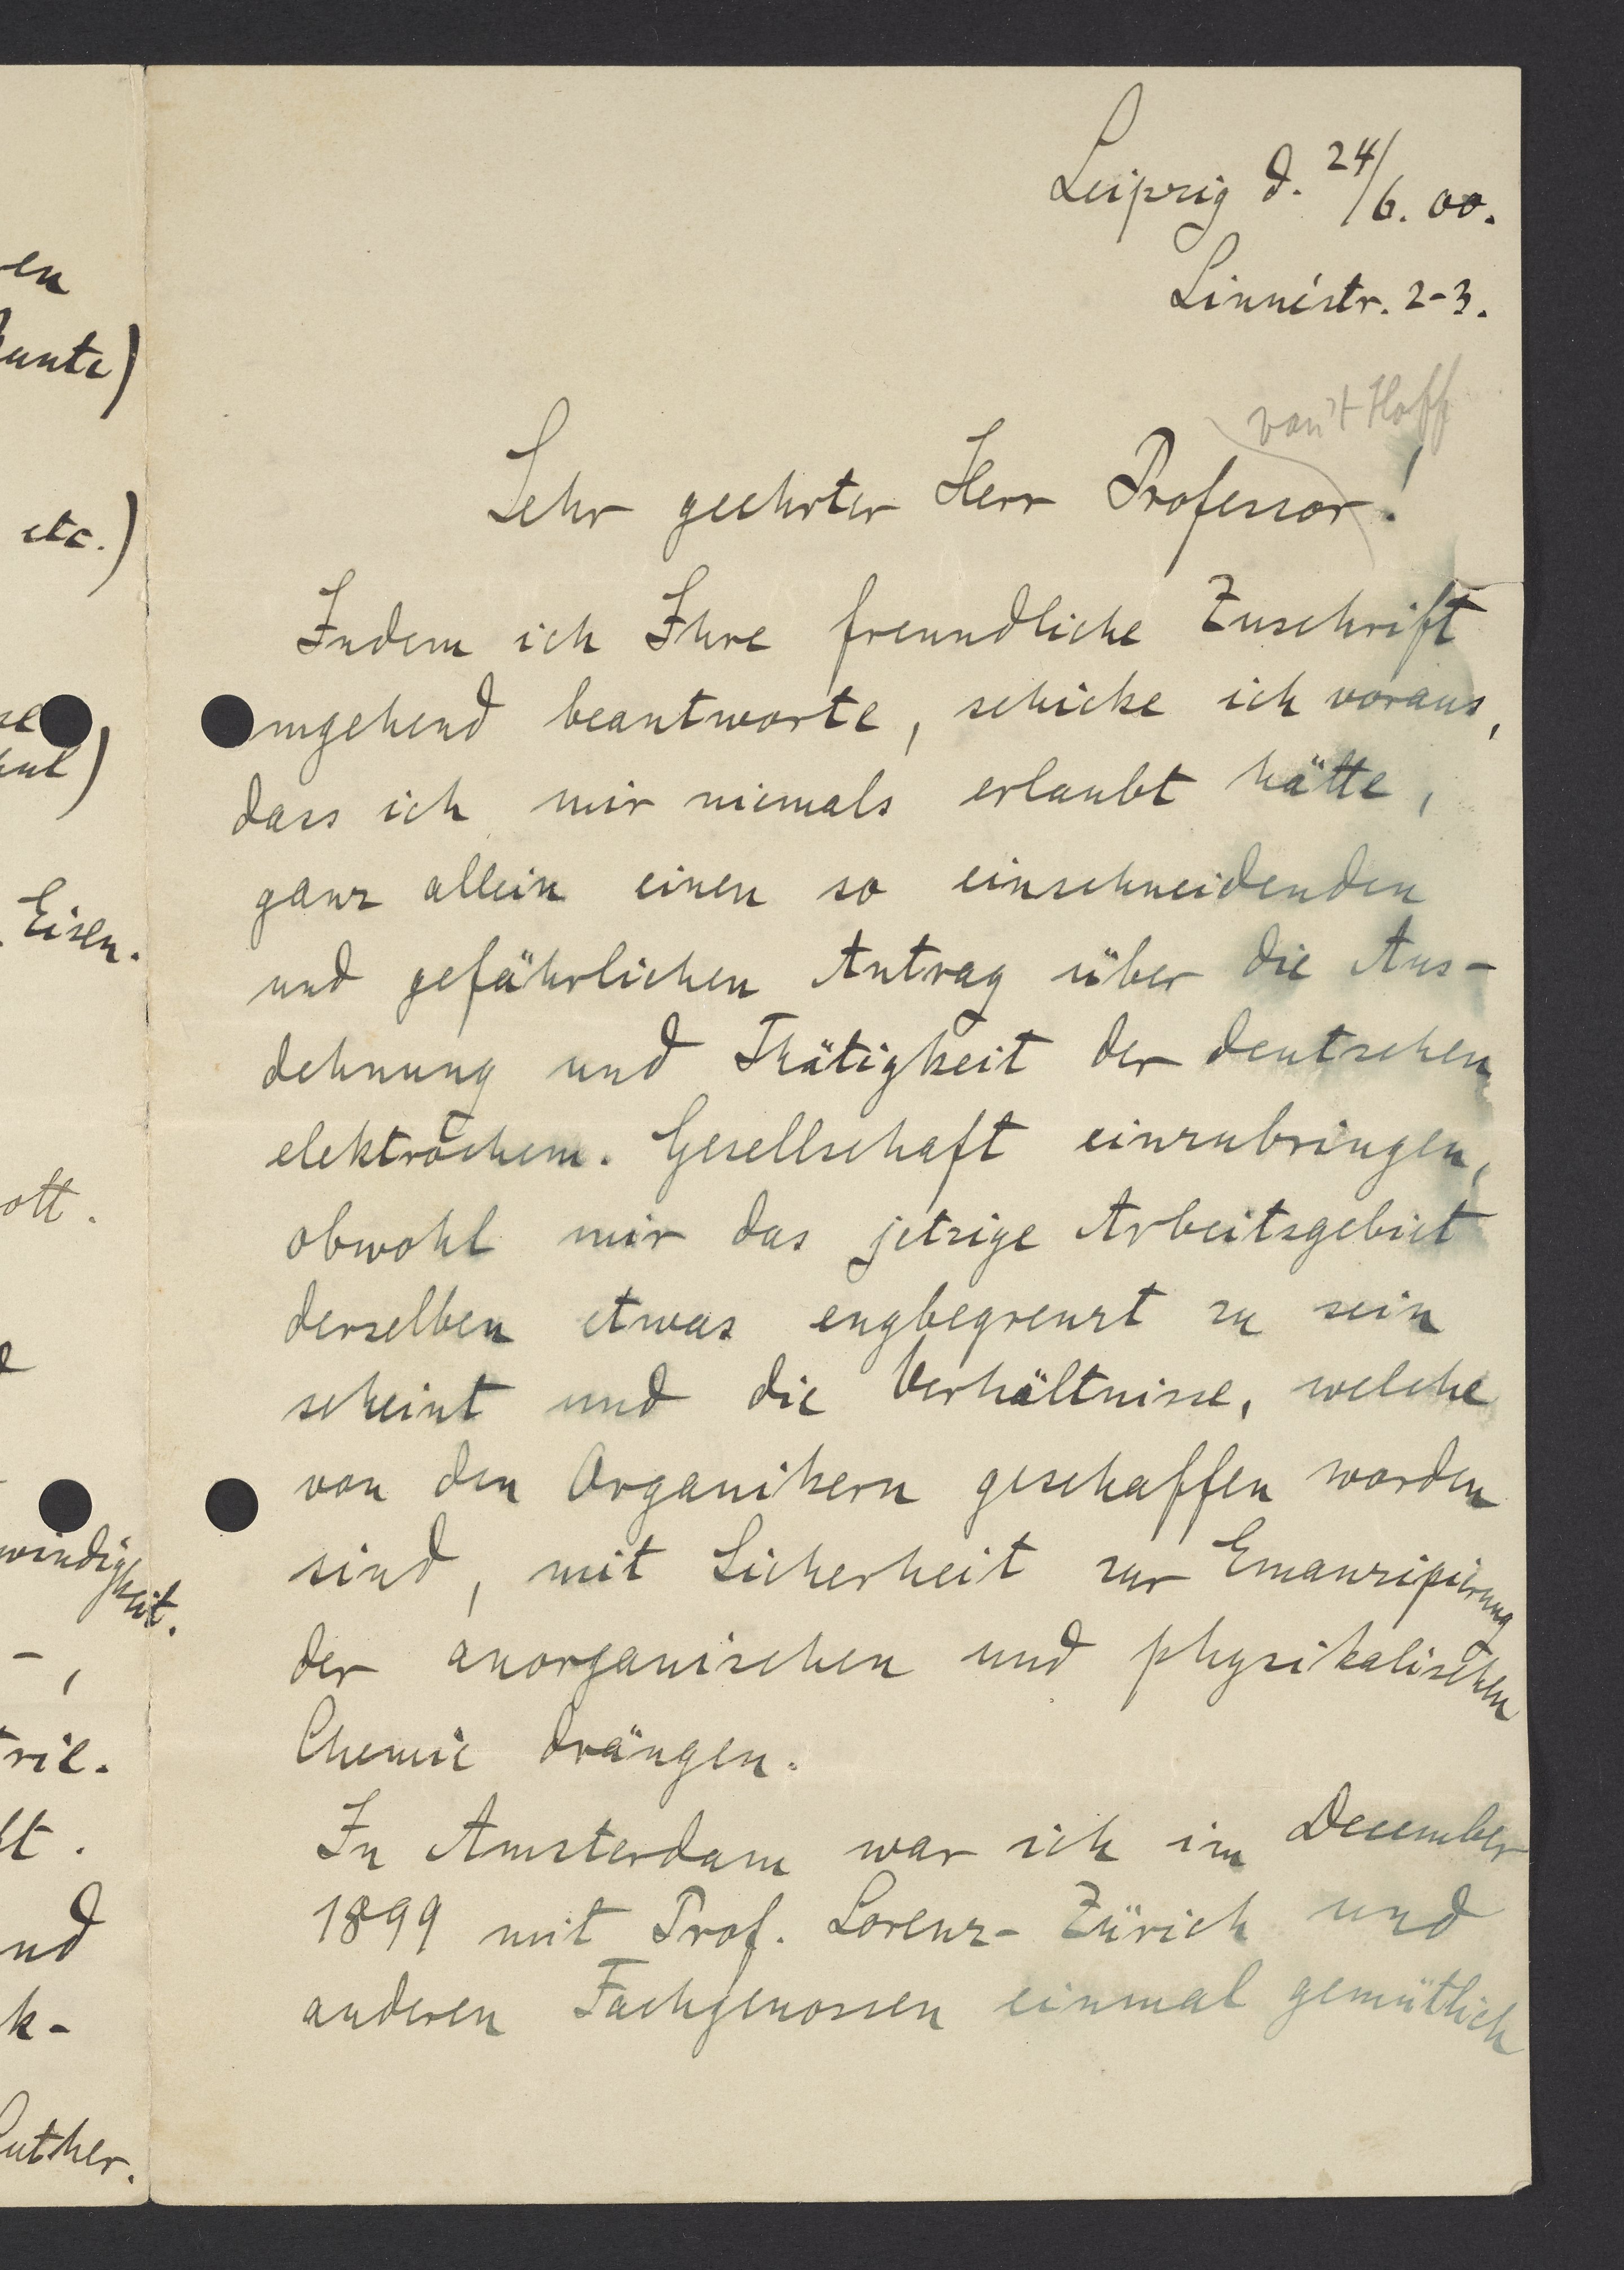 en
etc.)
Eisen.
ott.
windigkeit.
-,
rie.
nd
k-
Luther.
Leipzig d. 24/6. 00.
Linnéstr. 2-3.
van't Hoff
Sehr geehrter Herr Professor!
Indem ich Ihre freundliche Zuschrift
mgehend beantworte, schicke ich voraus,
dass ich mir niemals erlaubt hätte,
ganz allein einen so einschneidenden
und gefährlichen Antrag über die Aus-
dehnung und Thätigkeit der deutschen
elektrochem. Gesellschaft einzubringen,
obwohl mir das jetzige Arbeitsgebiet
derselben etwas engbegrenzt zu sein
scheint und die Verhältnisse, welche
von den Organikern geschaffen worden
sind, mit Sicherheit zur Emanzipirung
der anorganischen und physikalischen
Chemie drängen.
In Amsterdam war ich im December
1899 mit Prof. Lorenz-Zürich und
anderen Fachgenossen einmal gemütlich